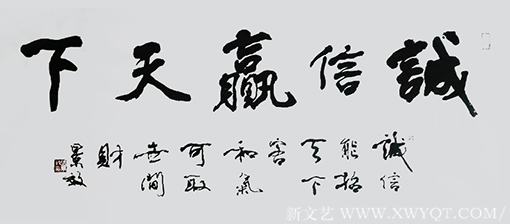 誠信贏天下
誠信
能招
天下
客
和氣
可取
世間
財
新文艺 WWW.XWYQT.COM